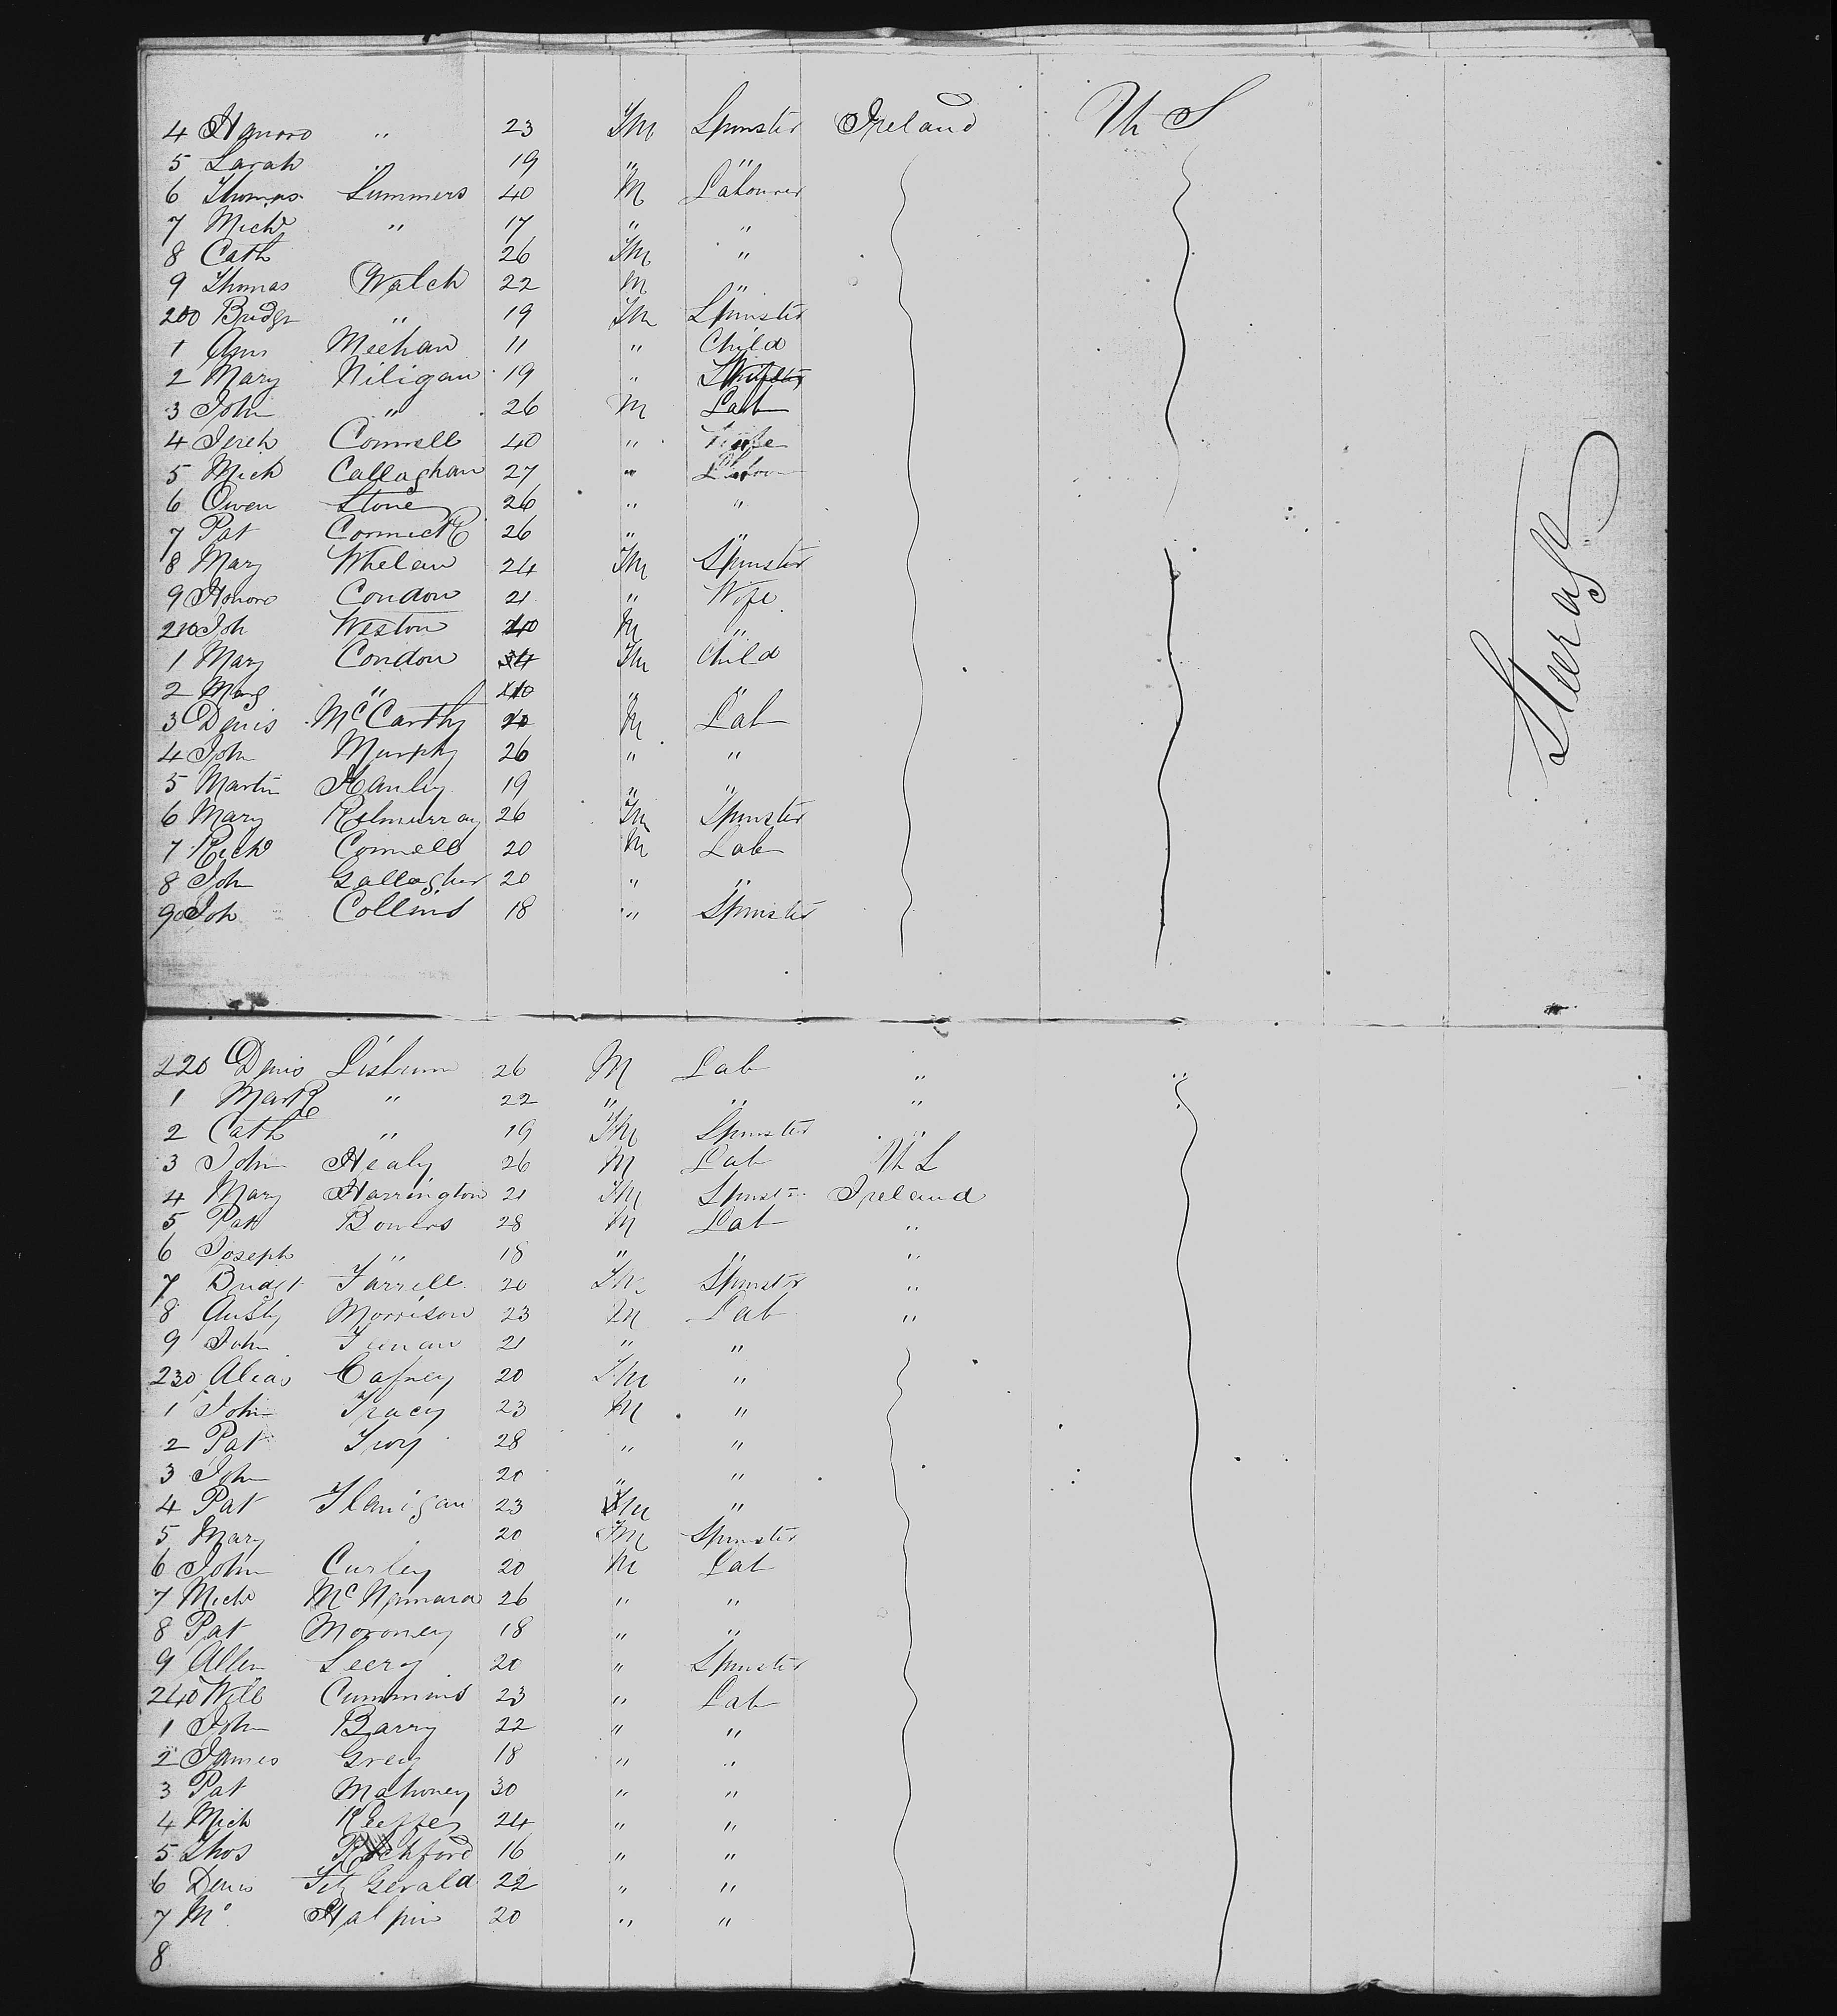 4 Honora " 23 Fm Spinster Ireland U S
5 Sarah " 19 " "
6 Thomas Summers 40 M Labourer
7 Mich " 17 " "
8 Cath 26 Fm "
9 Thomas Walch 22 M "
200 Bridgt " 19 Fm Spinster
1 Ann Meehan 11 " Child
2 Mary Niligan 19 "
3 John " 26 M Lab
4 Jereh Connell 40 "
5 Mich Callaghan 27 "
6 Owen Stone 26 " "
7 Pat Cormick 26 " "
8 Mary Whelan 24 Fm Spinster
9 Honora Condon 21 " Wife
210 Joh Weston M "
1 Mary Condon Fm Child
2 Marg " " "
3 Denis McCarthy M Lab
4 John Murphy 26 " "
5 Martin Hanley 19 " "
6 Mary Kilmurray 26 Fm Spinster
7 Richd Connell 20 M Lab
8 John Gallagher 20 " "
90 Joh Collins 18 " Spinster
Steerage
220 Denis 26 M Lab " "
1 Mark " 22 " " "
2 Cath " 19 Fm Spinster "
3 John Healy 26 M Lab U S
4 Mary Harrington 21 Fm Spinstr Ireland
5 Patk Bowers 28 M Lab "
6 Joseph " 18 " " "
7 Bridgt Farrell 20 Fm Spinster "
8 Austy Morrison 23 M Lab "
9 John 21 " "
230 Alias Cafney 20 Fm "
1 John Tracy 23 M "
2 Pat Ivory 28 " "
3 John 20 " "
4 Pat Flanigan 23 "
5 Mary 20 Fm Spinster
6 John Curley 20 M Lab
7 Michl McNamara 26 " "
8 Pat Moroney 18 " "
9 Allen Leery 20 " Spinster
240 Will Cummins 23 " Lab
1 John Barry 22 " "
2 James Grey 18 " "
3 Pat Mahoney 30 " "
4 Mich Keeffe 24 " "
5 Thos Rochford 16 " "
6 Denis Fitz Gerald 22 " "
7 M Halpin 20 " "
8